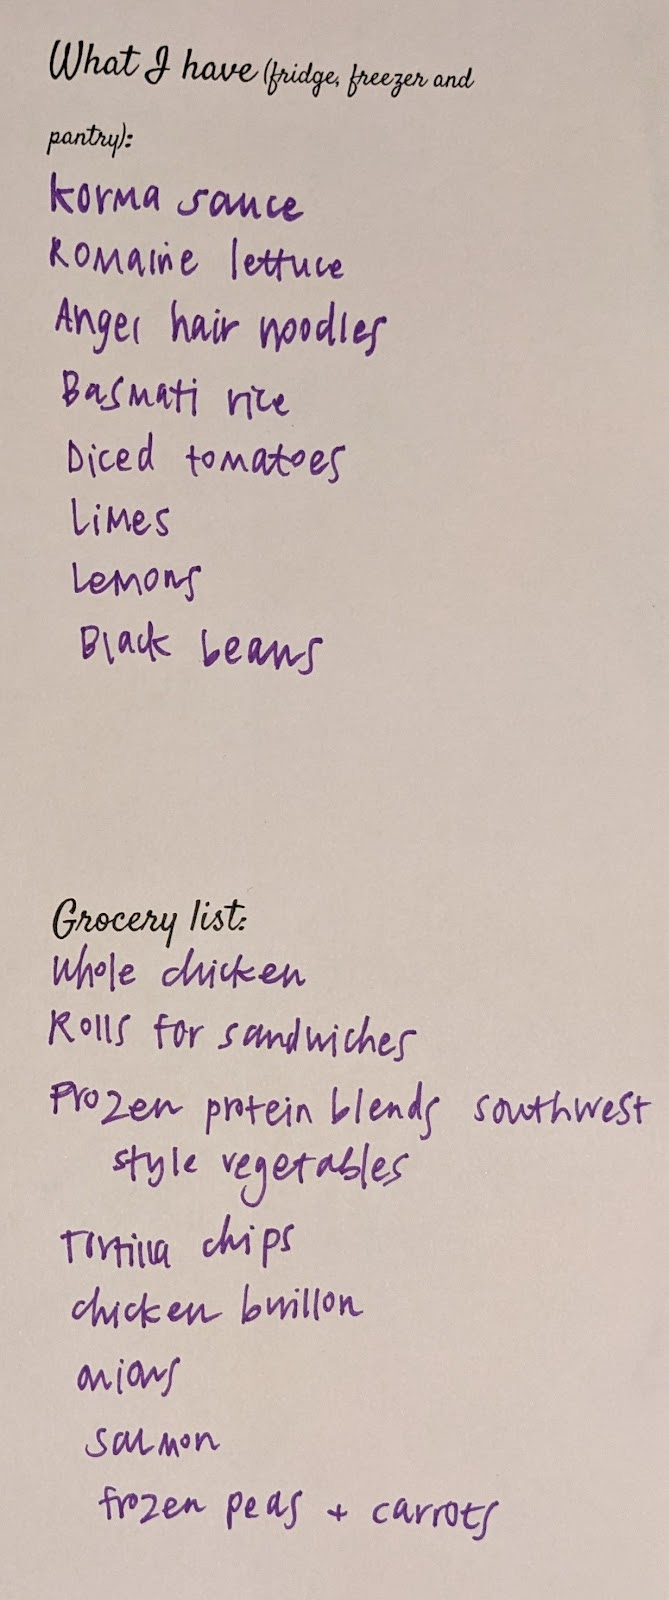 What I have (fridge, freezer and
pantry):
Korma sauce
Romaine lettuce
Angel hair noodles
Basmati rice
Diced tomatoes
Limes
Lemons
Black beans
Grocery list:
Whole chicken
Rolls for sandwiches
Frozen protein blends southwest
style vegetables
Tortilla chips
chicken buillon
onions
salmon
frozen peas + carrots